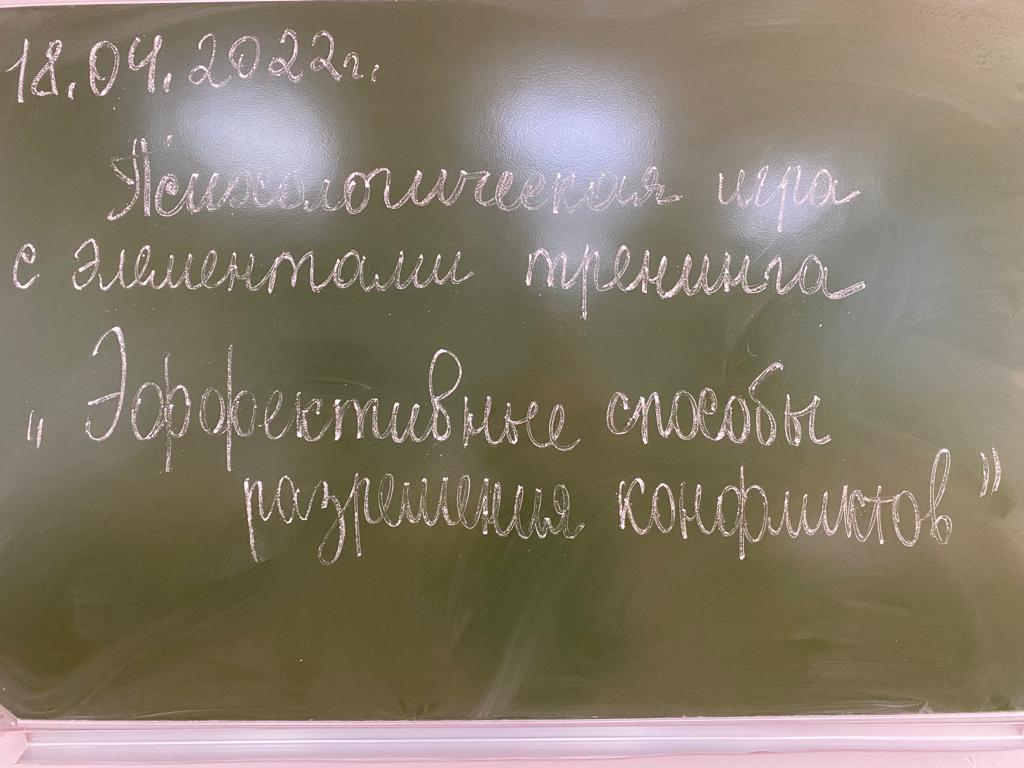 18.04.2022г.
Психологическая игра
с элементами тренинга
„Эффективные способы
разрешения конфликтов”